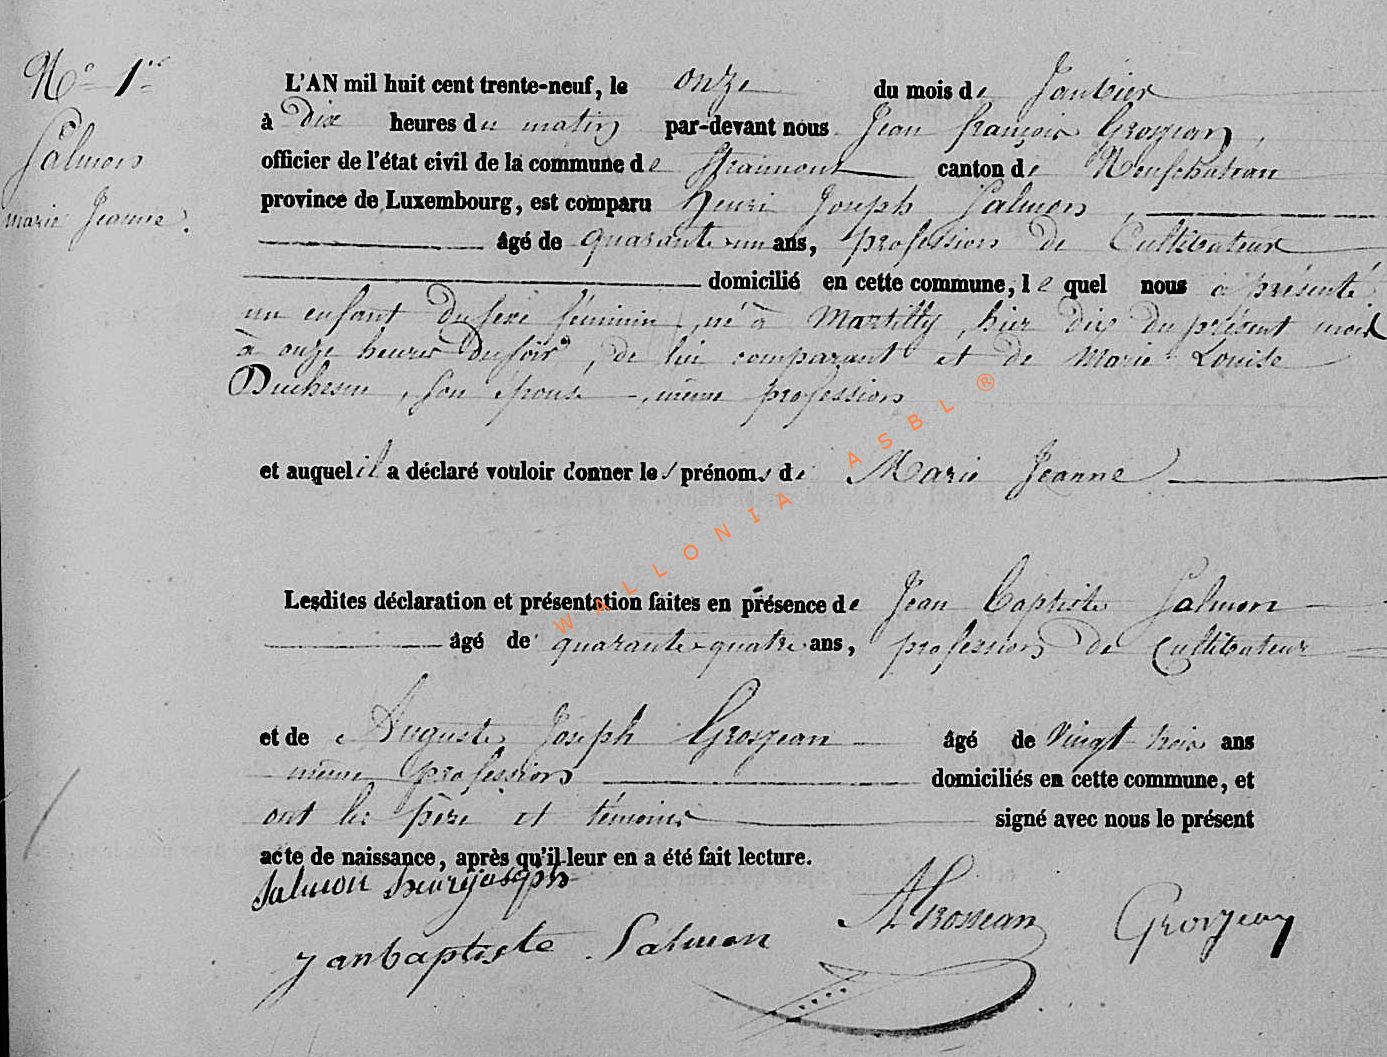 N° 1er
Salmon
marie Jeanne.
L'AN mil huit cent trente-neuf, le onze du mois de Janvier
à Dix heures du matin par-devant nous Jean françois Grosjean,
officier de l'état civil de la commune de Straimont canton de Neufchateau
province de Luxembourg, est comparu henri Joseph Salmon,
âgé de quarante un ans, profession de Cultivateur
domicilié en cette commune, lequel nous a présenté
un enfant du sexe féminin, né à Martilly, hier dix du présent mois
à onze heures du soir, de lui comparant et de Marie Louise
Duchesne, son épouse, même profession
et auquel il a déclaré vouloir donner les prénoms de Marie Jeanne
Lesdites déclaration et présentation faites en présence de Jean Baptiste Salmon
âgé de quarante-quatre ans, profession de Cultivateur
et de Auguste Joseph Grosjean âgé de Vingt trois ans
même profession domiciliés en cette commune, et
ont les père et témoins signé avec nous le présent
acte de naissance, après qu'il leur en a été fait lecture.
Salmon henry joseph
janbaptiste Salmon
A Grosjean
Grosjean
WALLONIA ASBL ®